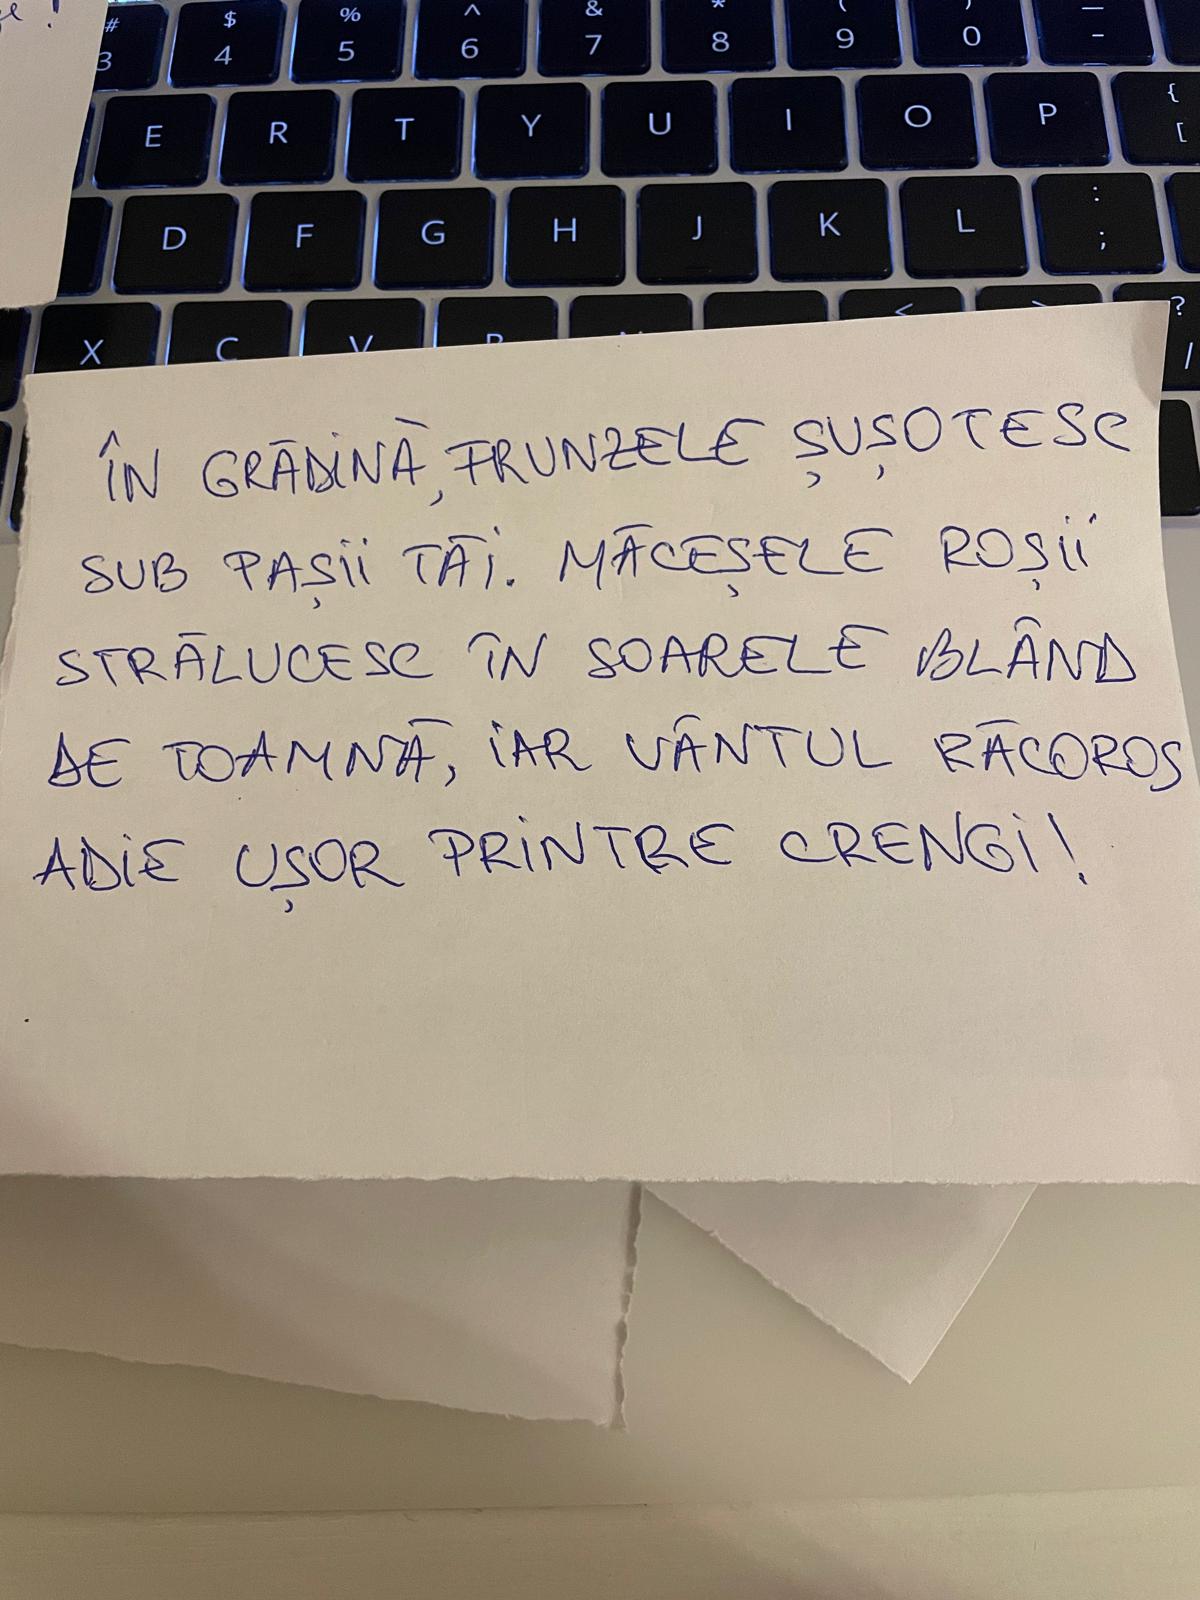 e!
# $ % ^ & * ( ) —
3 4 5 6 7 8 9 0 -
E R T Y U I O P { [
D F G H J K L : ;
X C V B N < > ? /
ÎN GRĂDINĂ, FRUNZELE ȘUȘOTESC
SUB PAȘII TĂI. MĂCEȘELE ROȘII
STRĂLUCESC ÎN SOARELE BLÂND
DE TOAMNĂ, IAR VÂNTUL RĂCOROS
ADIE UȘOR PRINTRE CRENGI!